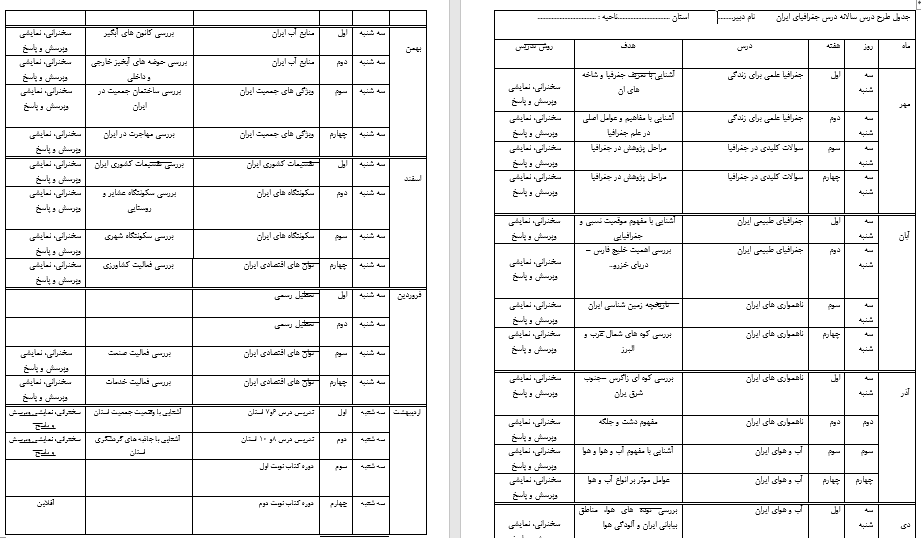 جدول طرح درس سالانه درس جغرافیای ایران نام دبیر........ استان .......................ناحیه : ..........................
ماه روز هفته درس هدف روش تدریس
مهر سه شنبه اول جغرافیا علمی برای زندگی آشنایی با تعریف جغرفیا و شاخه های ان سخنرانی، نمایشی وپرسش و پاسخ
سه شنبه دوم جغرافیا علمی برای زندگی آشنایی با مفاهیم و عوامل اصلی در علم جغرافیا سخنرانی، نمایشی وپرسش و پاسخ
سه شنبه سوم سوالات کلیدی در جغرافیا مراحل پژوهش در جغرافیا سخنرانی، نمایشی وپرسش و پاسخ
سه شنبه چهارم سوالات کلیدی در جغرافیا مراحل پژوهش در جغرافیا سخنرانی، نمایشی وپرسش و پاسخ
آبان سه شنبه اول جغرافیای طبیعی ایران آشنایی با مفهوم موقعیت نسبی و جغرافیایی سخنرانی، نمایشی وپرسش و پاسخ
سه شنبه دوم جغرافیای طبیعی ایران بررسی اهمیت خلیج فارس – دریای خزرو.. سخنرانی، نمایشی وپرسش و پاسخ
سه شنبه سوم ناهمواری های ایران تاریخچه زمین شناسی ایران سخنرانی، نمایشی وپرسش و پاسخ
سه شنبه چهارم ناهمواری های ایران بررسی کوه های شمال غرب و البرز سخنرانی، نمایشی وپرسش و پاسخ
آذر سه شنبه اول ناهمواری های ایران بررسی کوه ای زاگرس –جنوب شرق یران سخنرانی، نمایشی وپرسش و پاسخ
دوم دوم ناهمواری های ایران مفهوم دشت و جلگه سخنرانی، نمایشی وپرسش و پاسخ
سوم سوم آب و هوای ایران آشنایی با مفهوم آب و هوا و هوا سخنرانی، نمایشی وپرسش و پاسخ
چهارم چهارم آب و هوای ایران عوامل موثر بر انواع آب و هوا سخنرانی، نمایشی وپرسش و پاسخ
دی سه شنبه اول آب و هوای ایران بررسی توده های هوا، مناطق بیابانی ایران و آلودگی هوا سخنرانی، نمایشی
بهمن سه شنبه اول منابع آب ایران بررسی کانون های آبگیر سخنرانی، نمایشی وپرسش و پاسخ
سه شنبه دوم منابع آب ایران بررسی حوضه های آبخیز خارجی و داخلی سخنرانی، نمایشی وپرسش و پاسخ
سه شنبه سوم ویژگی های جمعیت ایران بررسی ساختمان جمعیت در ایران سخنرانی، نمایشی وپرسش و پاسخ
سه شنبه چهارم ویژگی های جمعیت ایران بررسی مهاجرت در ایران سخنرانی، نمایشی وپرسش و پاسخ
اسفند سه شنبه اول تقسیمات کشوری ایران بررسی تقسیمات کشوری ایران سخنرانی، نمایشی وپرسش و پاسخ
سه شنبه دوم سکونتگاه های ایران بررسی سکونتگاه عشایر و روستایی سخنرانی، نمایشی وپرسش و پاسخ
سه شنبه سوم سکونتگاه های ایران بررسی سکونتگاه شهری سخنرانی، نمایشی وپرسش و پاسخ
سه شنبه چهارم توان های اقتصادی ایران بررسی فعالیت کشاورزی سخنرانی، نمایشی وپرسش و پاسخ
فروردین سه شنبه اول تعطیل رسمی
سه شنبه دوم تعطیل رسمی
سه شنبه سوم توان های اقتصادی ایران بررسی فعالیت صنعت سخنرانی، نمایشی وپرسش و پاسخ
سه شنبه چهارم توان های اقتصادی ایران بررسی فعالیت خدمات سخنرانی، نمایشی وپرسش و پاسخ
اردیبهشت سه شنبه اول تدریس درس ۶و۷ استان آشنایی با وضعیت جمعیت استان سخنرانی، نمایشی وپرسش و پاسخ
سه شنبه دوم تدریس درس ۸و ۱۰ استان آشنایی با جاذبه های گردشگری استان سخنرانی، نمایشی وپرسش و پاسخ
سه شنبه سوم دوره کتاب نوبت اول
سه شنبه چهارم دوره کتاب نوبت دوم آفلاین